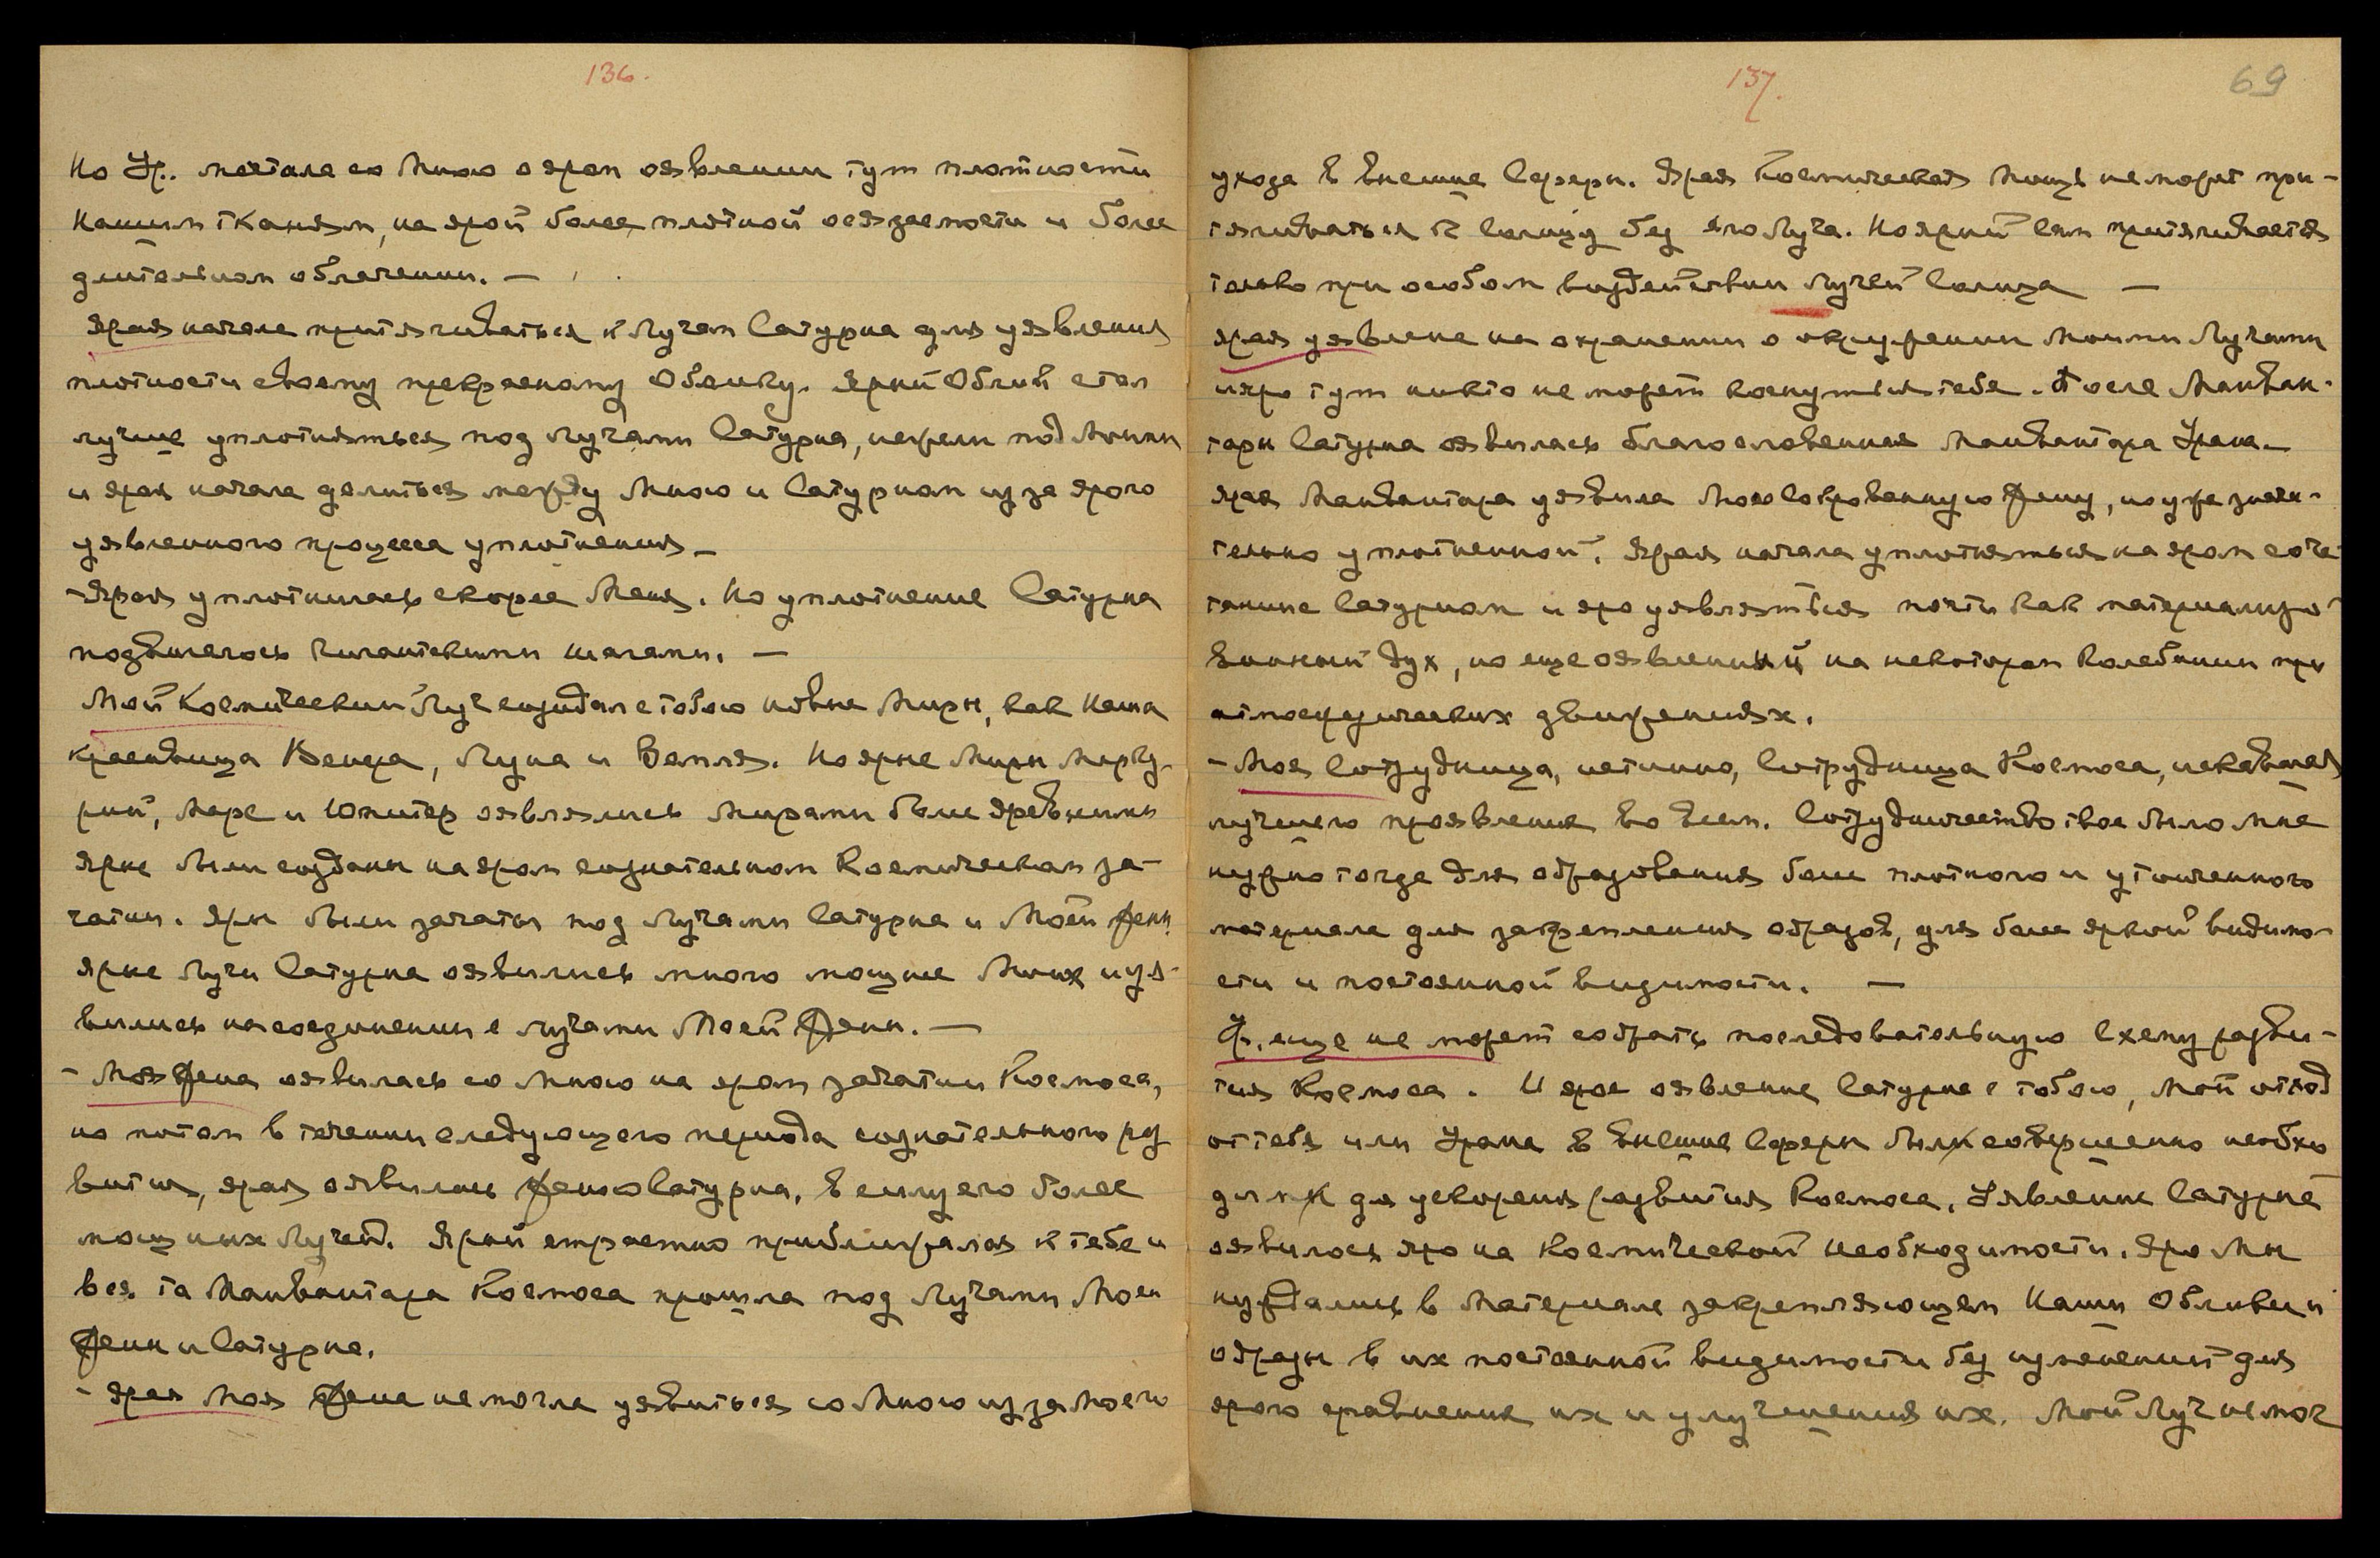 136.
Но Ур. мечтала со Мною о яром оявлении тут плотности
Нашим тканям, на ярой более плотной осязаемости и более
длительном облачении. —
Ярая начала притягиваться к Лучам Сатурна для уявления
плотности своему прекрасному Облику. Ярый Облик стал
лучше уплотняться под Лучами Сатурна, нежели под Моими
и ярая начала делиться между Мною и Сатурном из за ярого
уявленного процесса уплотнения —
- Ярая уплотнилась скорее Меня. Но уплотнение Сатурна
подвигалось гигантскими шагами. —
Мой Космический Луч создал с тобою новые Миры, как Наша
красавица Венера, Луна и Земля. Но ярые Миры Мерку-
рий, Марс и Юпитер оявлялись Мирами более древними
ярые были созданы на яром сознательном Космическом за-
чатии. Яры были зачаты под Лучами Сатурна и Моей Жены.
ярые Лучи Сатурна оявились много мощнее Моих и уя-
вились на соединении с лучами Моей Жены. —
- Моя Жена оявилась со Мною на яром зачатии Космоса,
но потом в течении следующего периода сознательного раз
вития, ярая оявилась Женою Сатурна, в силу его более
мощных Лучей. Ярый страстно приближался к тебе и
вся та Манвантара Космоса прошла под Лучами Моей
Жены и Сатурна.
- Ярая Моя Жена не могла уявиться со Мною из за Моего
137.
69
ухода в Внешние Сферы. Ярая Космическая Мощь не может при-
тягиваться к Солнцу без его Луча. Но ярый сам притягивается
только при особом воздействии Лучей Солнца —
ярая уявлена на охранении о окружении Моими Лучами
и яро тут никто не может коснуться тебя. После Манван-
тары Сатурна оявилась благословенная Манвантара Урана.
ярая Манвантара уявила Мою Сокровенную Жену, но уже значи-
тельно уплотненной. Ярая начала уплотняться на яром соче-
тании с Сатурном и яро уявляться почти как материализо-
ванный дух, но еще оявленный на некотором колебании при
атмосферических движениях.
- Моя Сотрудница, истинно, Сотрудница Космоса, искавшая
лучшего проявления во всем. Сотрудничество твое было мне
нужно тогда для образования более плотного и утонченного
материала для закрепления образов, для более яркой видимо-
сти и постоянной видимости. —
Ур. еще не может собрать последовательную схему разви-
тия Космоса. И ярое оявление Сатурна с тобою, Мой отход
от тебя или Урана в Внешние Сферы были совершенно необхо
димы для ускорения развития Космоса. Уявление Сатурна
оявилось яро на Космической необходимости. Яро Мы
нуждались в материале закрепляющем Наши Облики и
образы в их постоянной видимости без изменений для
ярого сравнения их и улучшения их. Мой Луч не мог